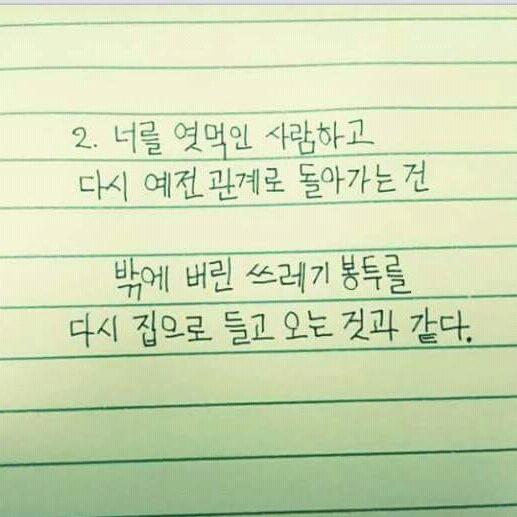 2. 너를 엿먹인 사람하고
다시 예전 관계로 돌아가는 건
밖에 버린 쓰레기 봉투를
다시 집으로 들고 오는 것과 같다.